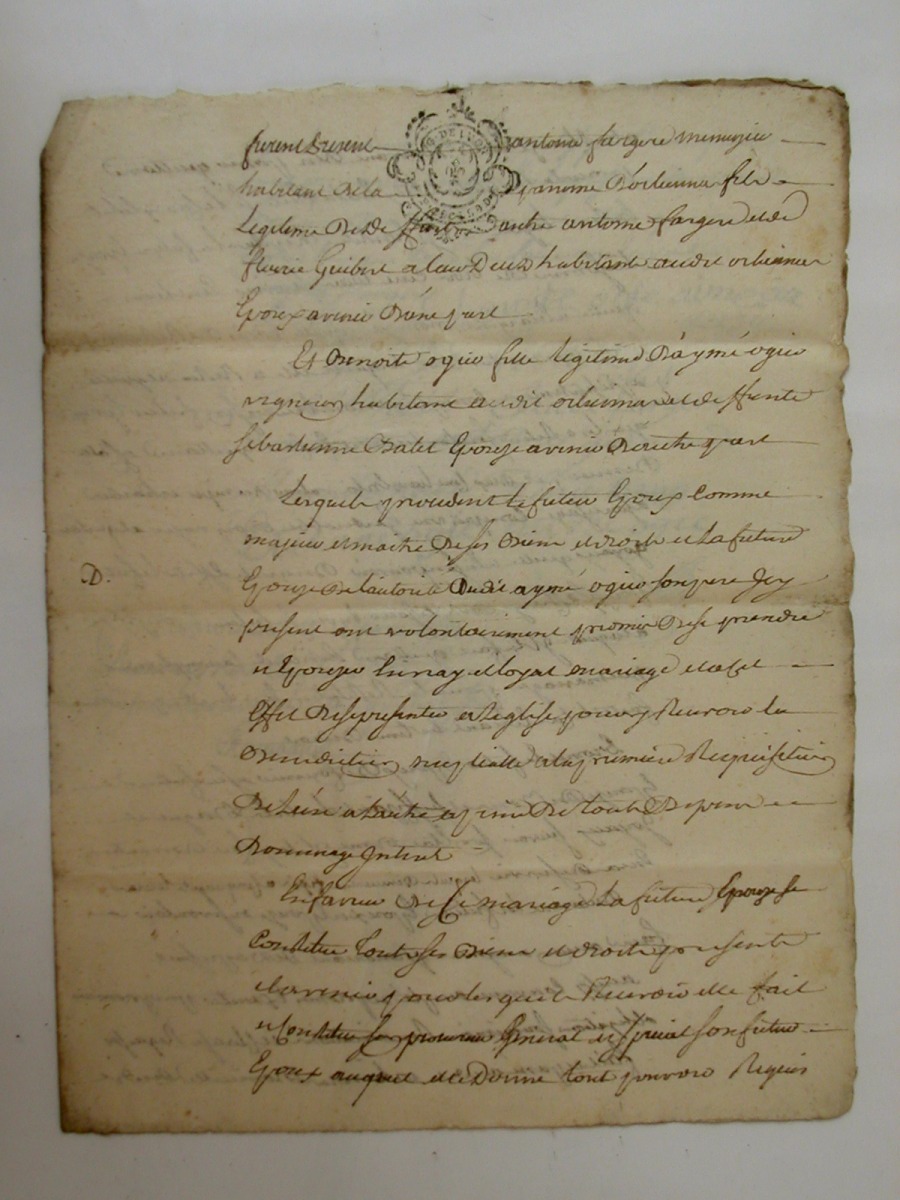 furent presents antoine fargere menuizier
habitant de la paroisse d'orlienna fils
Legitime de deffunt autre antoine fargere et de
fleurie Guibert a leur deces habitants audit orlienna
Epoux avenir d'une part
Et Benoite ogier fille legitime d'aymé ogier
vigneron habitant audit orlienna et de deffunte
sebastienne Epouse avenir d'autre part
Lesquels procedent le futeur Epoux comme
majeur et maitre de ses Biens et droits et La future
D.
Epouse de l'autorité dudit aymé ogier son pere Icy
present ont volontairement promis de se prendre
et Epouser En vray et loyal mariage et a cet
Effet de se presenter a L'eglise pour y Recevoir la
Benediction nuptialle a la premiere Requisition
de L'un a L'autre a peine de touts depens
Dommage Interet
En faveur de Ce mariage La future Epouse se
Constitue touts ses Biens et droits presents
et avenir pour lesquels Recevoir elle fait
et Constitue son procureur General et special son futeur
Epoux auquel elle Donne tout pouvoir Requis